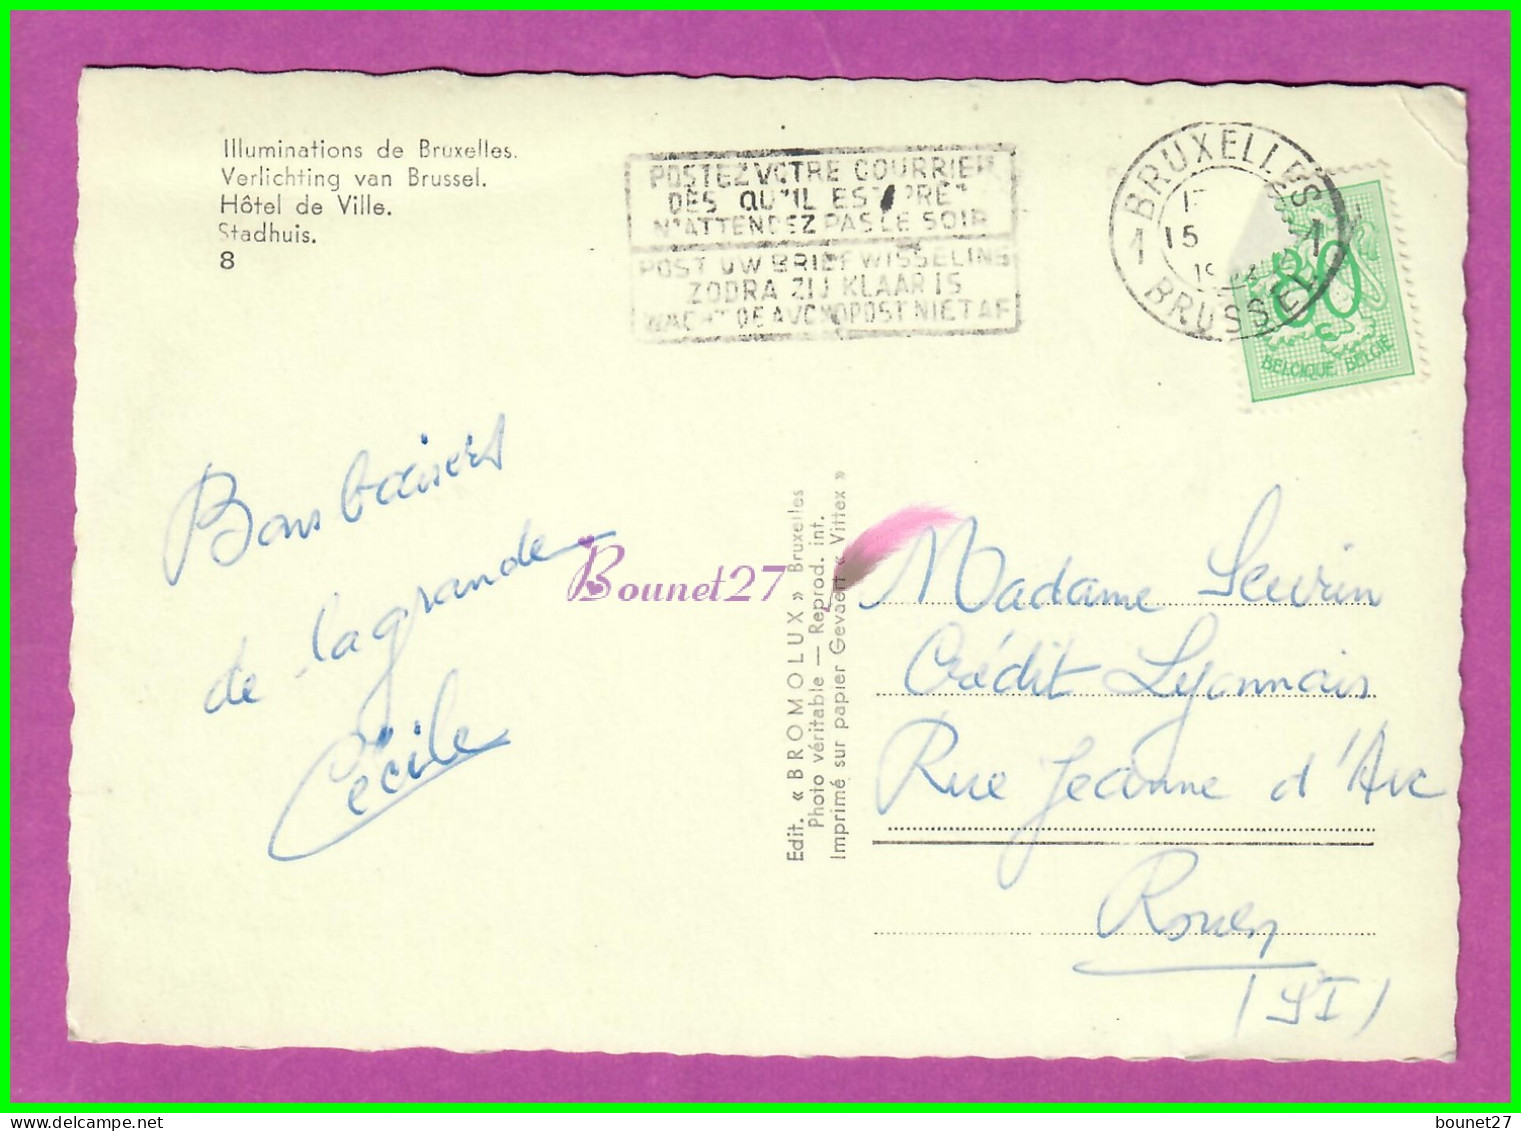 Illuminations de Bruxelles.
Verlichting van Brussel.
Hôtel de Ville.
Stadhuis.
8
POSTEZ VOTRE COURRIER
DÈS QU'IL EST PRÊT
N'ATTENDEZ PAS LE SOIR
POST UW BRIEFWISSELING
ZODRA ZIJ KLAAR IS
WACHT DE AVONDPOST NIET AF
1 BRUXELLES 1
15
BRUSSEL
80
c
BELGIQUE BELGIË
Bons baisers
de la grande
Cécile
Bounet27
Edit. « BROMOLUX » Bruxelles
Photo véritable — Reprod. int.
Imprimé sur papier Gevaert « Vittex »
Madame Seuvrin
Crédit Lyonnais
Rue Jeanne d'Arc
Rouen
(SI)
bounet27